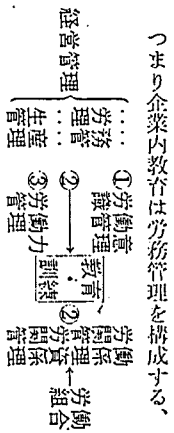 つまり企業内教育は労務管理を構成する、
経営管理
……
労務
管理
……
生産
管理
①労働意
識管理
②
③労働力
管理
教育・
訓練
②
労働
関係
管理
労資
関係
管理
←労働
組合